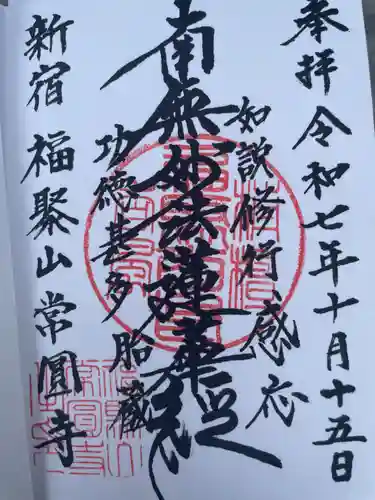 奉拝 令和七年十月十五日
如説修行感応
南無妙法蓮華経
功徳甚多胎蔵
新宿 福聚山 常圓寺